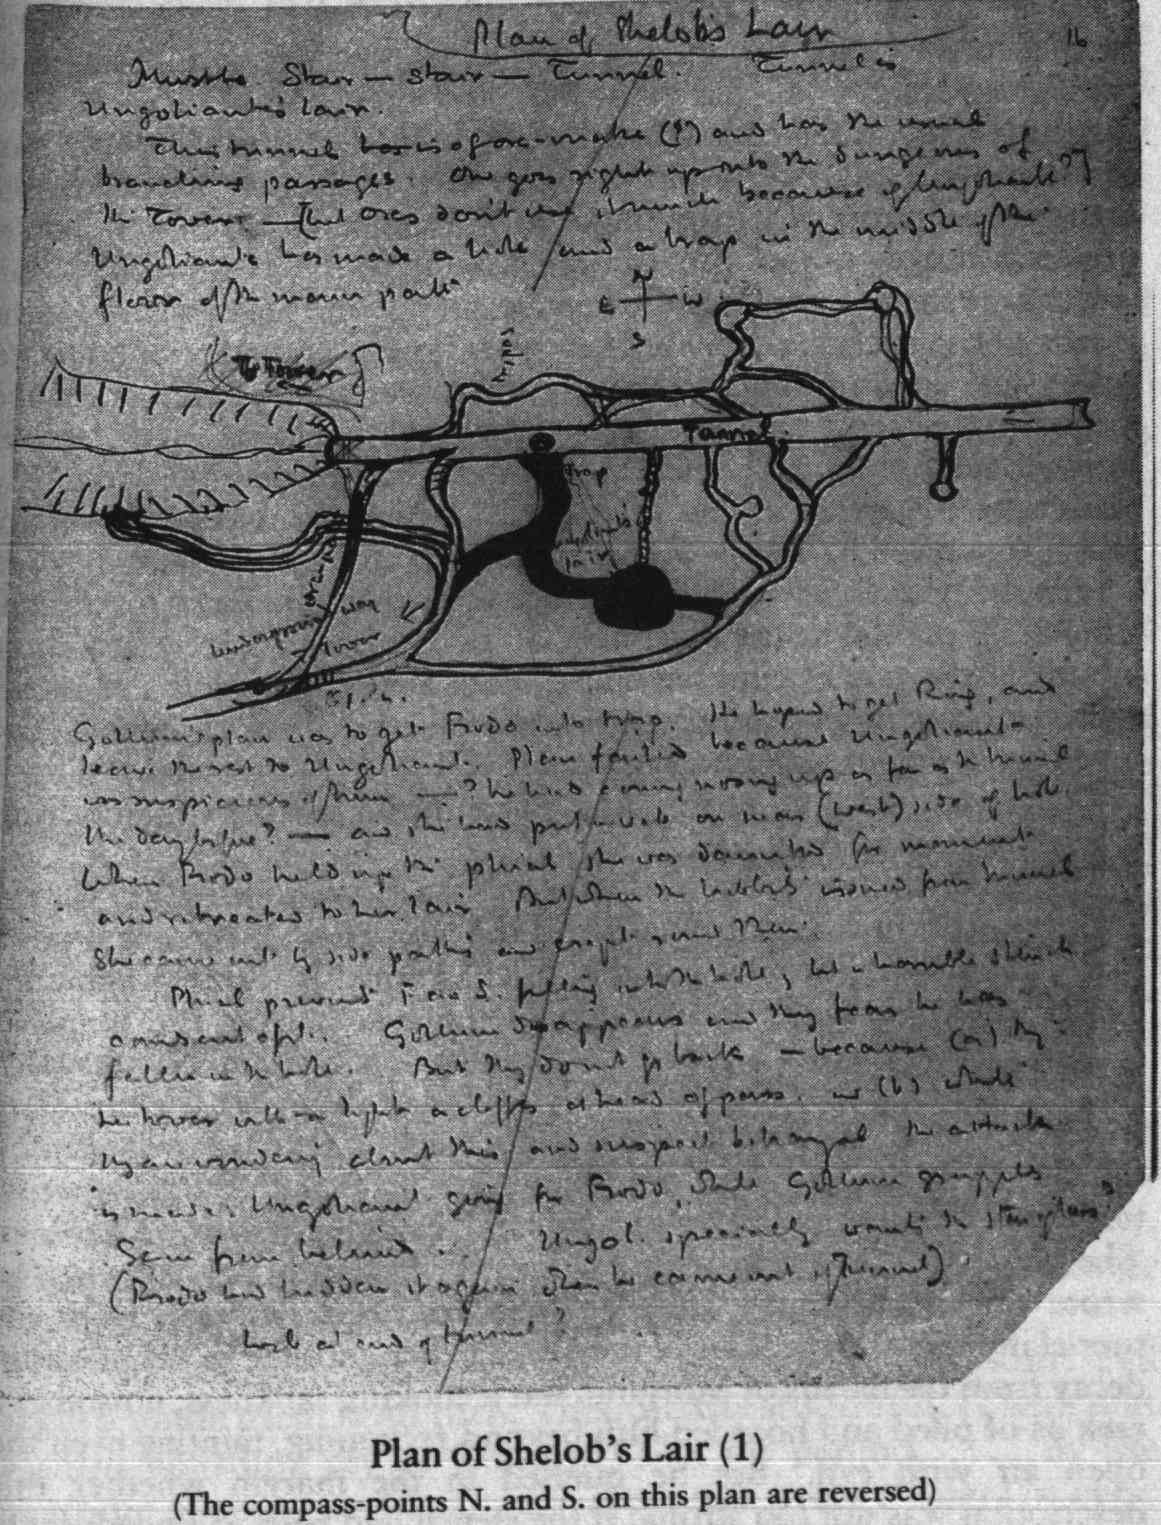 Plan of Shelob's Lair
16
Must be Stair — stair — Tunnel. Tunnel is
Ungoliante's lair.
This tunnel is of orc-make (?) and has the usual
branching passages. One goes right up into the dungeons of
the Tower — but orcs don't use it much because of Ungoliante
Ungoliante has made a hole and a trap in the middle of the
floor of the main path
N
E W
S
To Tower
Tunnel
trap
Ungoliante's
lair
underground way
tower
Gollum's plan was to get Frodo into trap. He hoped to get Ring, and
leave the rest to Ungoliant. Plan failed because Ungoliante
was suspicious of him — ? he had come nosing up as far as the tunnel
the day before? — and she had put webs on near (west) side of hole.
When Frodo held up the phial she was daunted for moment
and retreated to her lair. But when the hobbits issued from tunnel
she came out by side paths and crept round them.
Phial prevents F. and S. falling into the hole; but a horrible stench
comes out of it. Gollum disappears and they fear he has
fallen in the hole. But they don't go back — because (a) they
see tower with a light a cliff's at head of pass, and (b) while
they are wondering about this and suspect betrayal the attack
is made. Ungoliant going for Frodo, while Gollum grapples
Sam from behind. Ungol. specially wants the star-glass?
(Frodo had hidden it again when he came out of tunnel)
web at end of tunnel?
Plan of Shelob's Lair (1)
(The compass-points N. and S. on this plan are reversed)